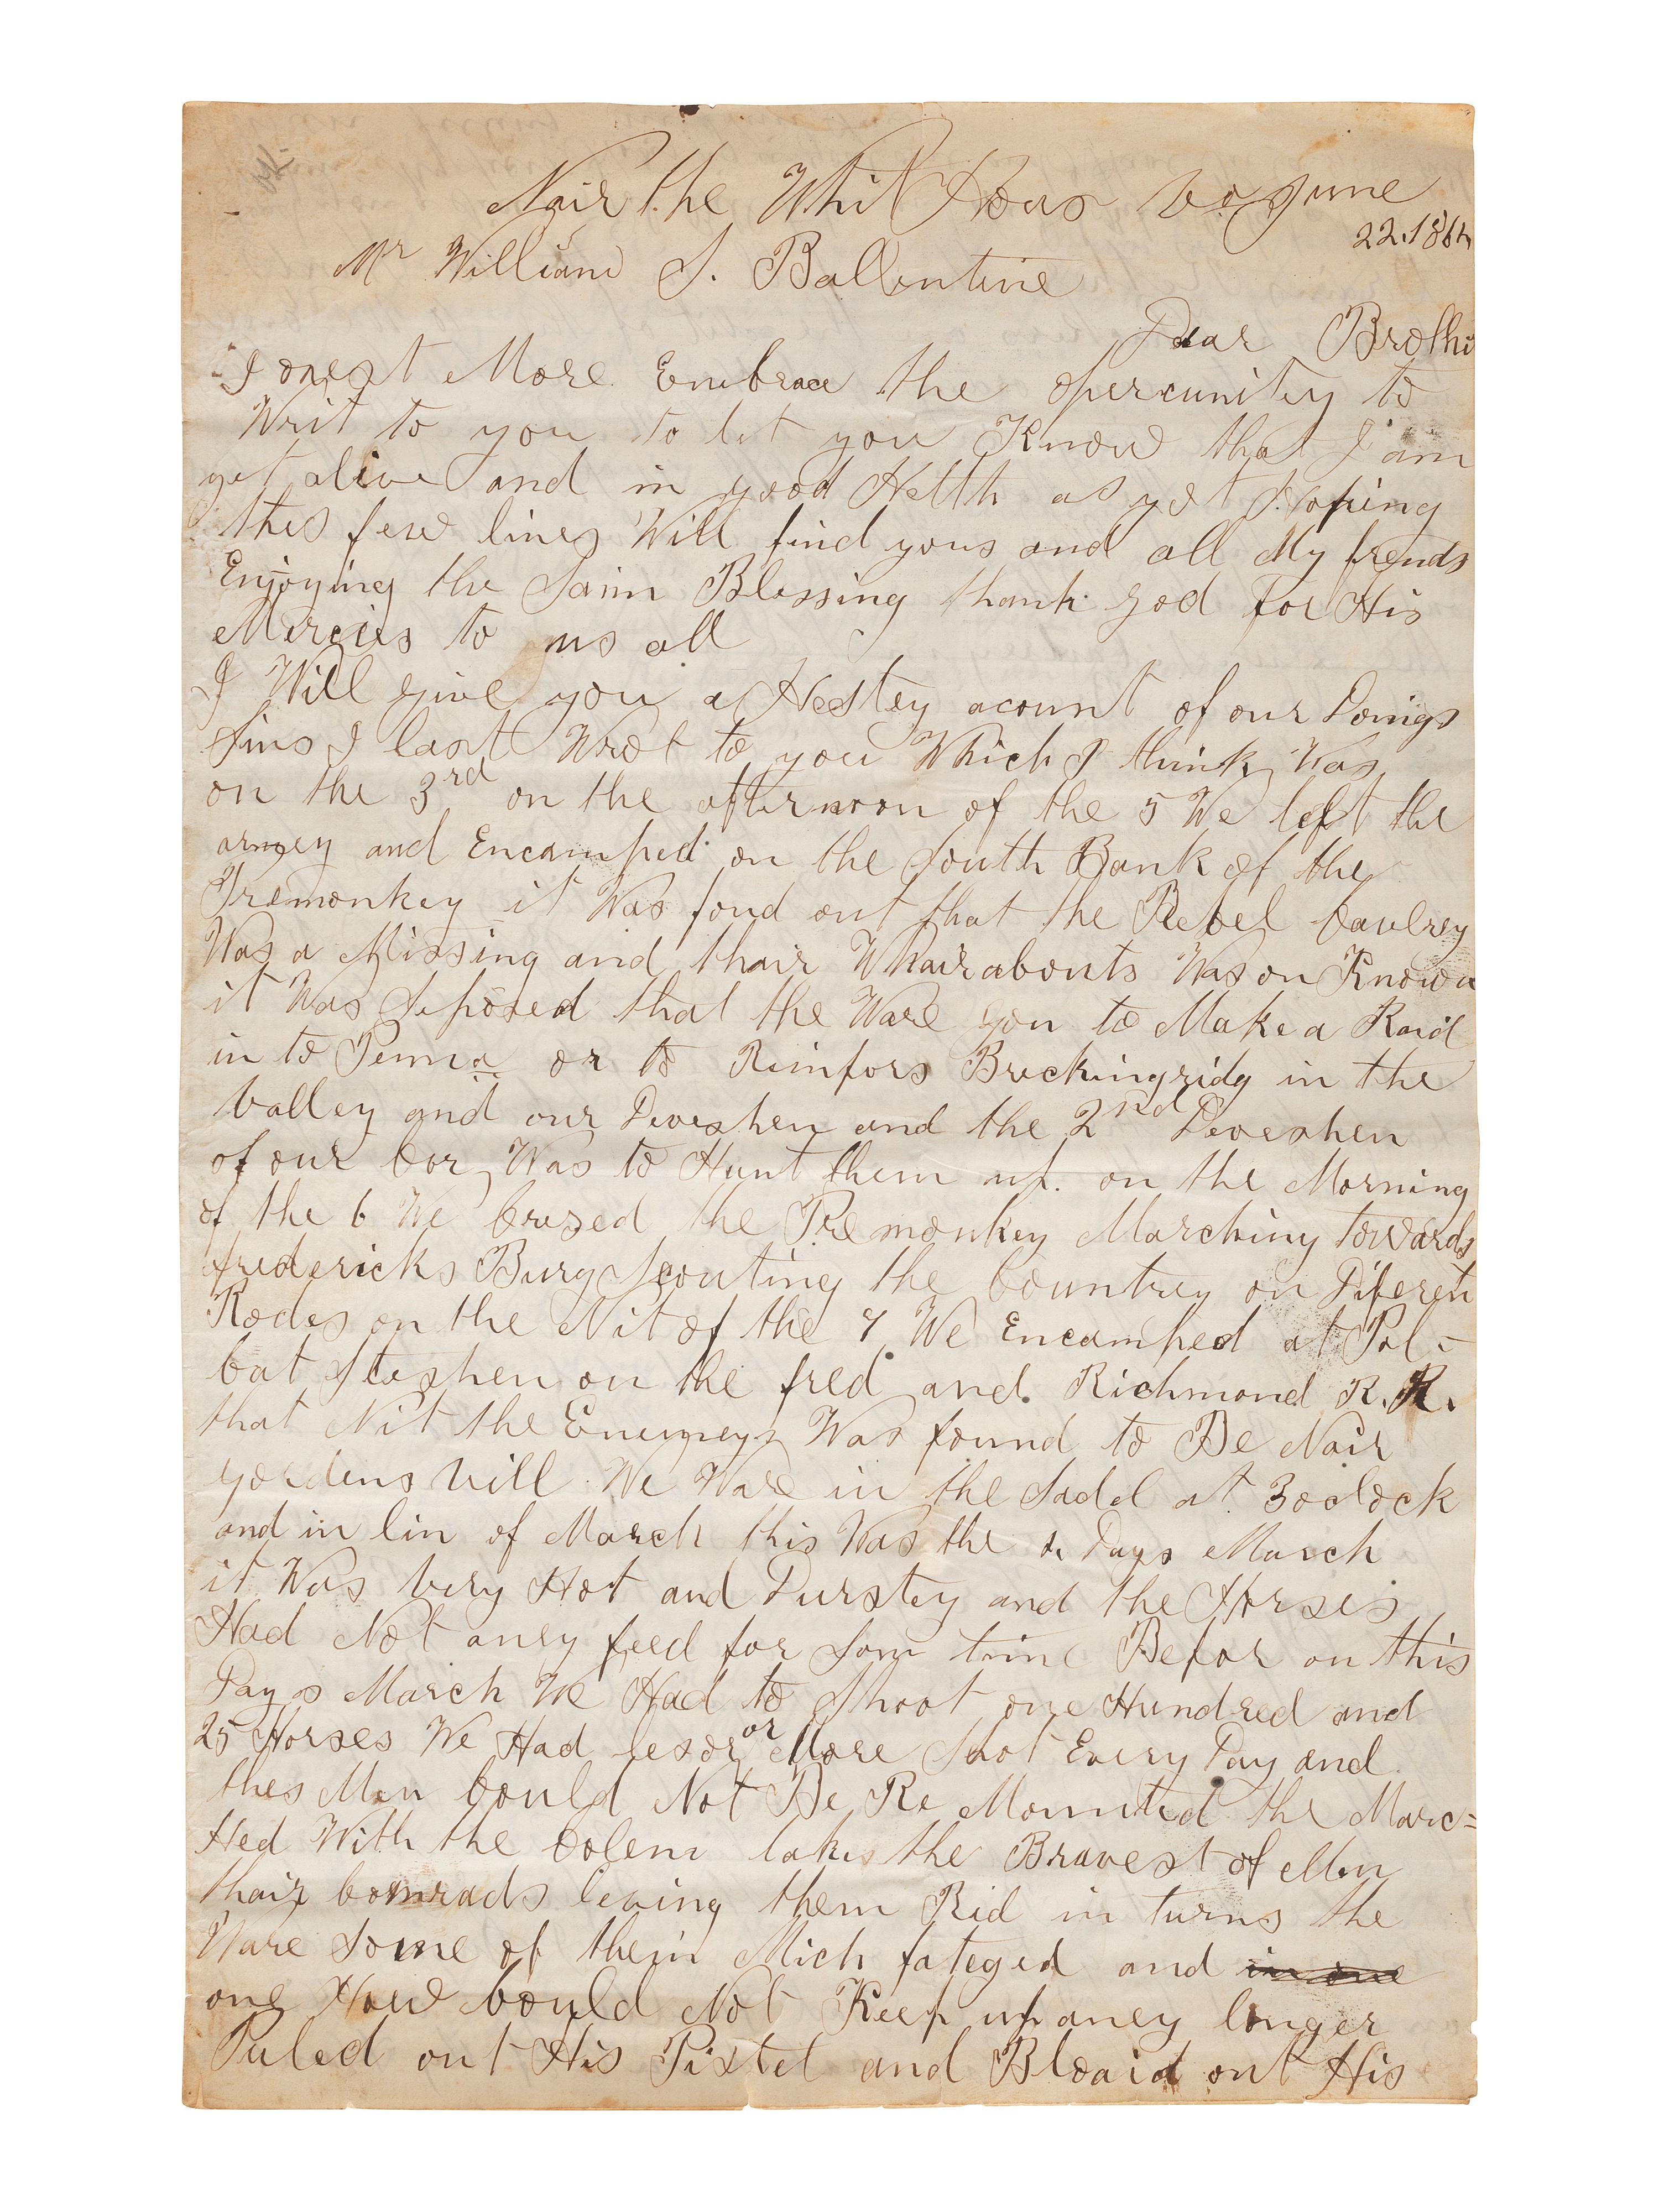 Nair the Whit Hous Va June
22. 1864
Mr William J. Ballentine
Dear Brother
I onest More Embrace the opercunity to
Writ to you to let you Know that I am
yet alive and in good Helth as yet Hoping
thes few lines Will find yous and all My frends
Enjoying the Saim Blessing thank god for His
Mercies to us all
I Will give you a Hestey acount of our Doings
Sins I last Wrot to you Which I think Was
on the 3rd on the afternoon of the 5 We left the
armey and Encamped on the South Bank of the
Premonkey it Was foud out that the Rebel Cavelrey
Was a Missing and thair Whairabouts Was on Known
it Was Seposed that the Ware gon to Make a Raid
in to Penna or to Rinfors Breckingridg in the
valley and our Deveshen and the 2nd Deveshen
of our Cor, Was to Hunt them up. on the Morning
of the 6 We Crosed the Premonkey Marching towards
fredericks Burg Scouting the Country on Diferent
Rodes on the Nit of the 7 We Encamped at Pol-
cat Steshen on the fred and Richmond R. R.
that Nit the Enemeys Was found to Be Nair
gordens vill We Ware in the Sadel at 3 oclock
and in lin of March this Was the Days March
it Was very Hot and Durstey and the Horses
Had Not aney feed for Som time Befor on this
Days March We Had to Shoot one Hundred and
25 Horses We Had lesor or More Shot Every Day and
thes Men Could Not Be Re Mounted the Marc=
Hed With the Colem takes the Bravest of Men
thair Comrads leving them Rid in turns the
Ware Some of them Mich fateged and in one
one How Could Not Keep up aney longer
Puled out His Pistel and Bloaid out His